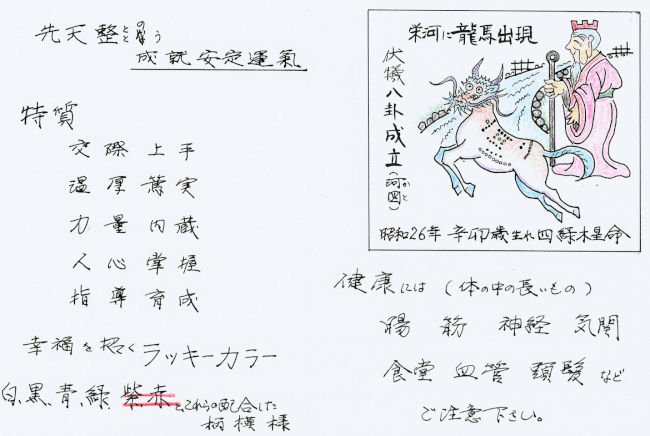 先天整ととのう
成就安定運氣
特質
交際上手
温厚篤実
力量内蔵
人心掌握
指導育成
幸福を招くラッキーカラー
白、黒、青、緑、紫、赤とこれらの配合した
柄模様
栄河に龍馬出現
伏犠八卦成立(河図かと)
昭和26年 辛卯歳生れ四緑木星命
健康には(体の中の長いもの)
腸 筋 神経 気関
食堂 血管 頭髪など
ご注意下さい。